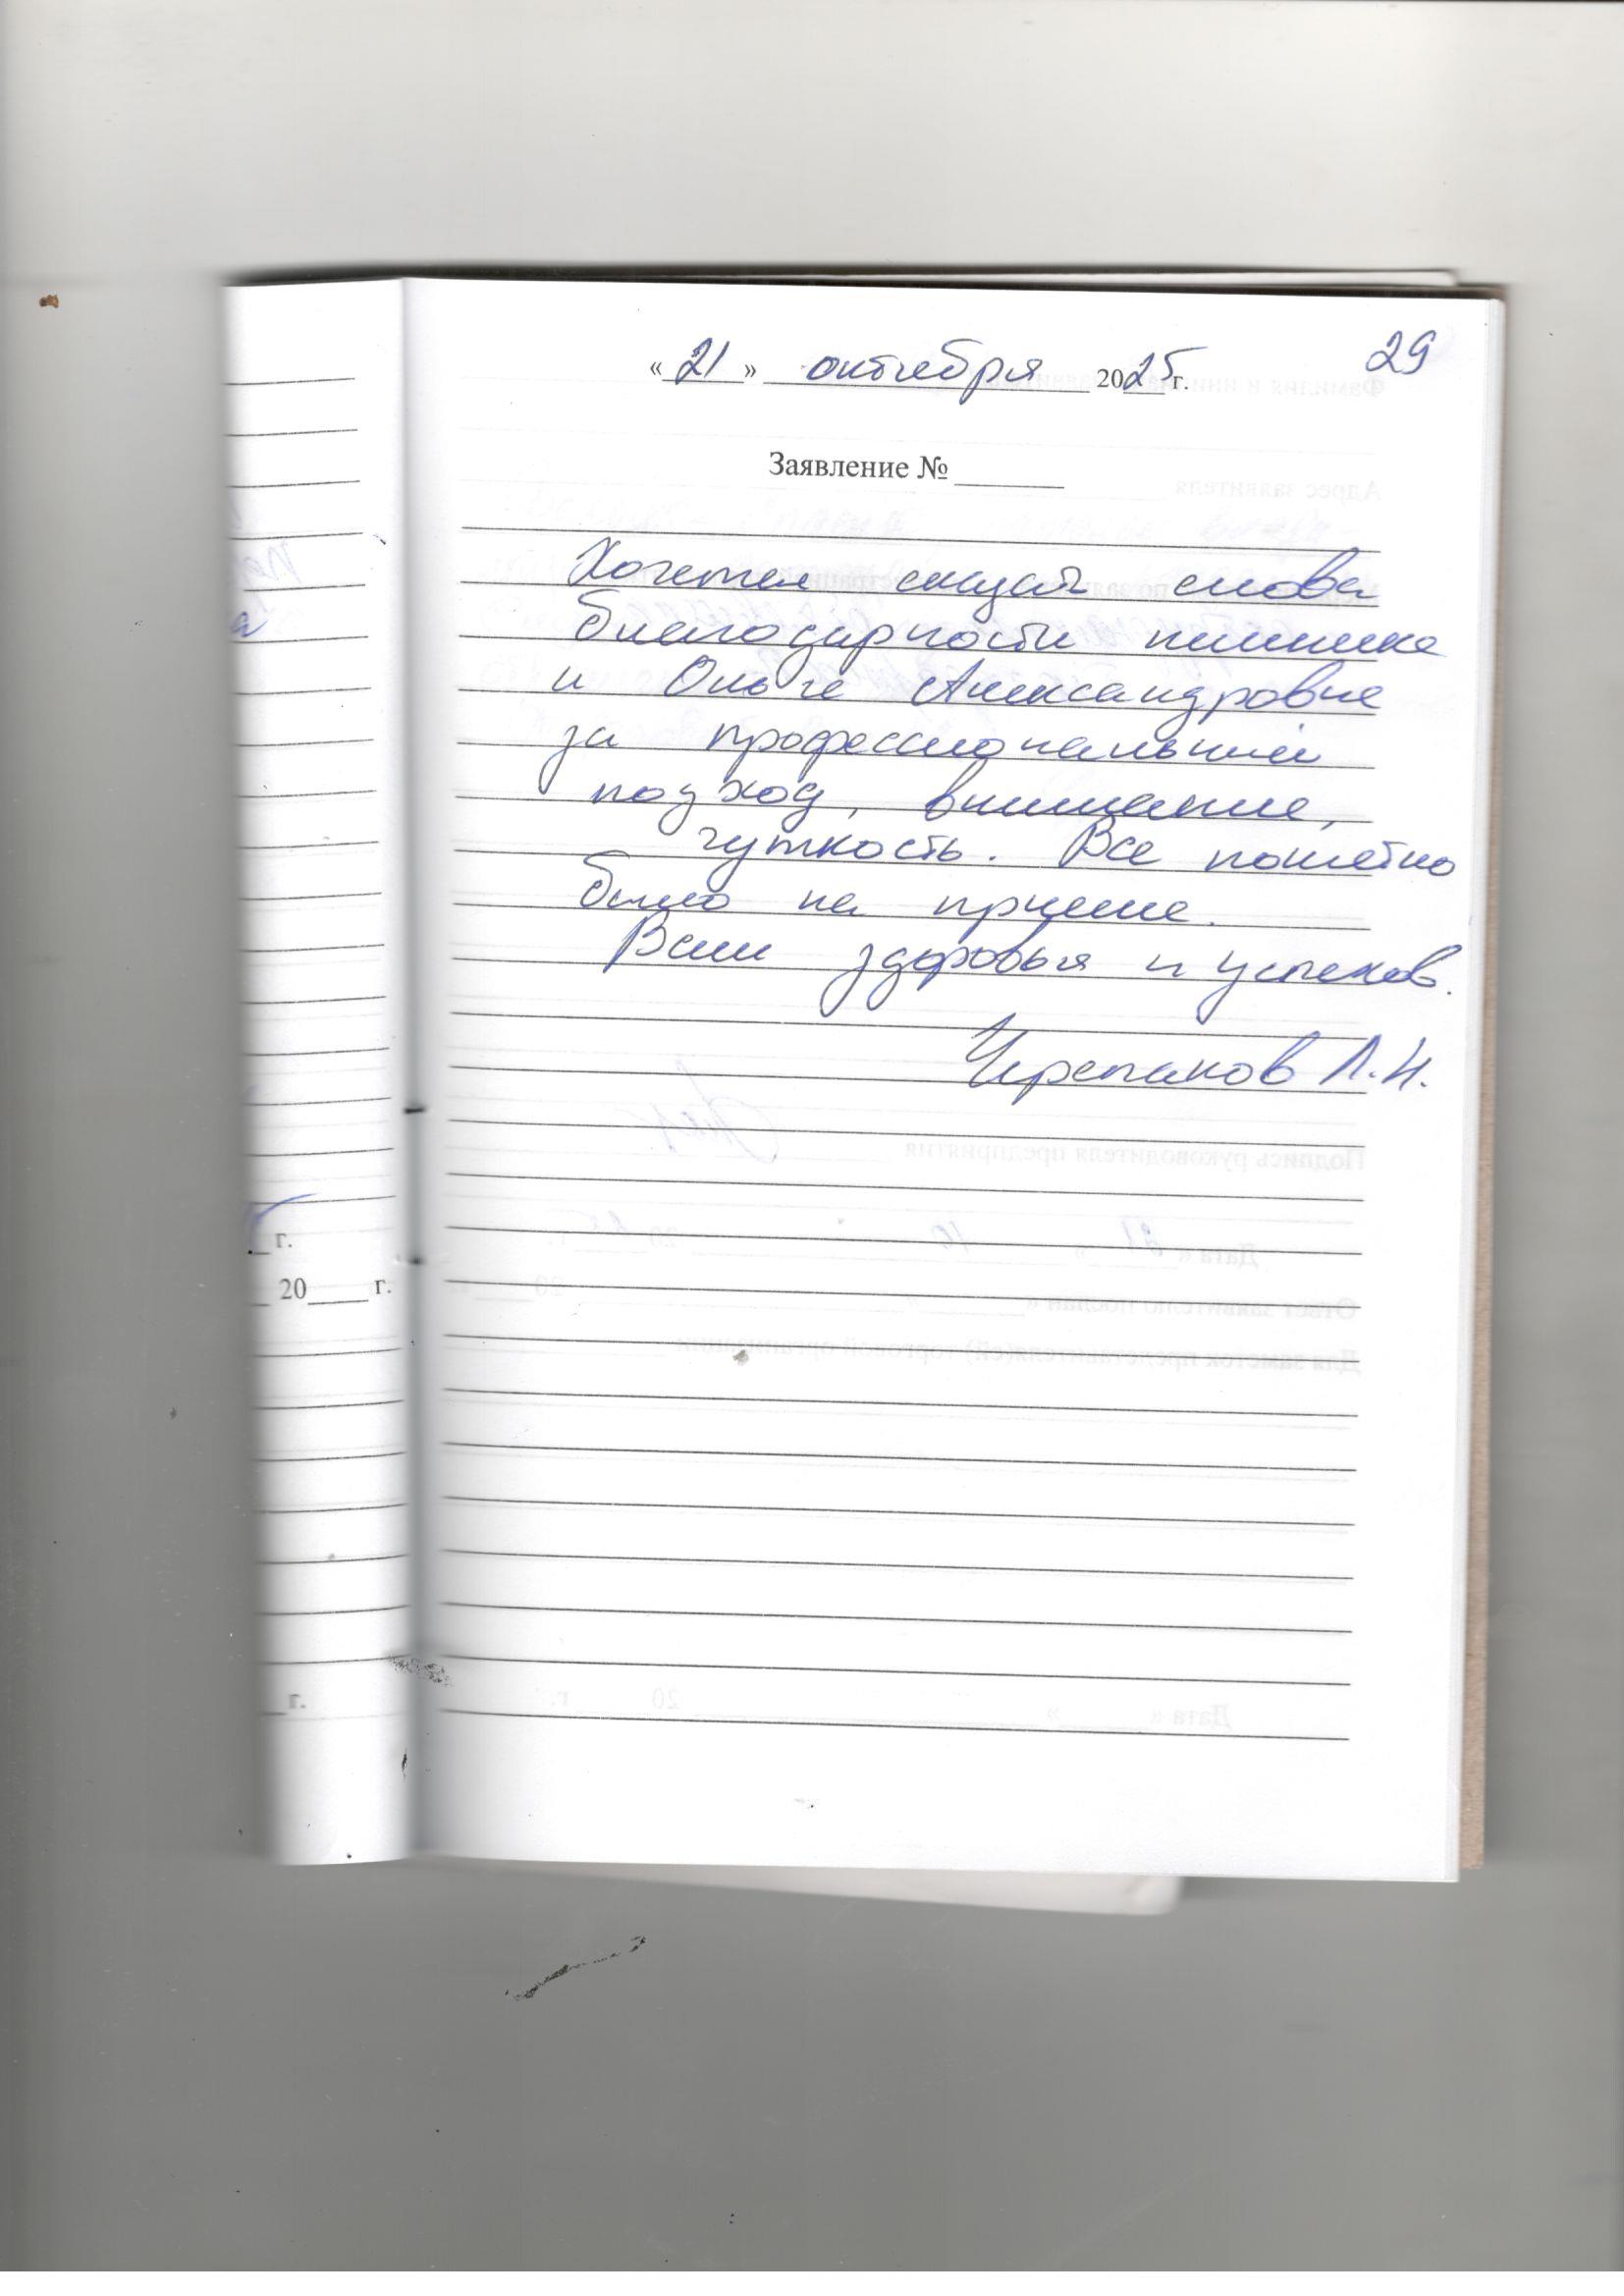 « 21 » октября 2025 г.
29
Заявление №
Хочется сказать слова
благодарности клинике
и Ольге Александровне
за профессиональный
подход, внимание,
чуткость. Все понятно
было на приеме.
Вам здоровья и успехов.
Черепанов Л.Н.
г.
20 г.
г.